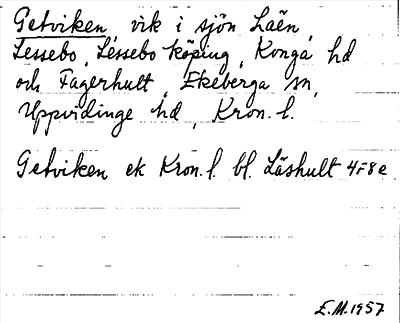 Getviken, vik i sjön Laën,
Lessebo, Lessebo köping, Konga hd
och Fagerhult, Ekeberga sn,
Uppvidinge hd, Kron. l.
Getviken ek Kron. l. bl. Läshult 4F8e
E.M.1957